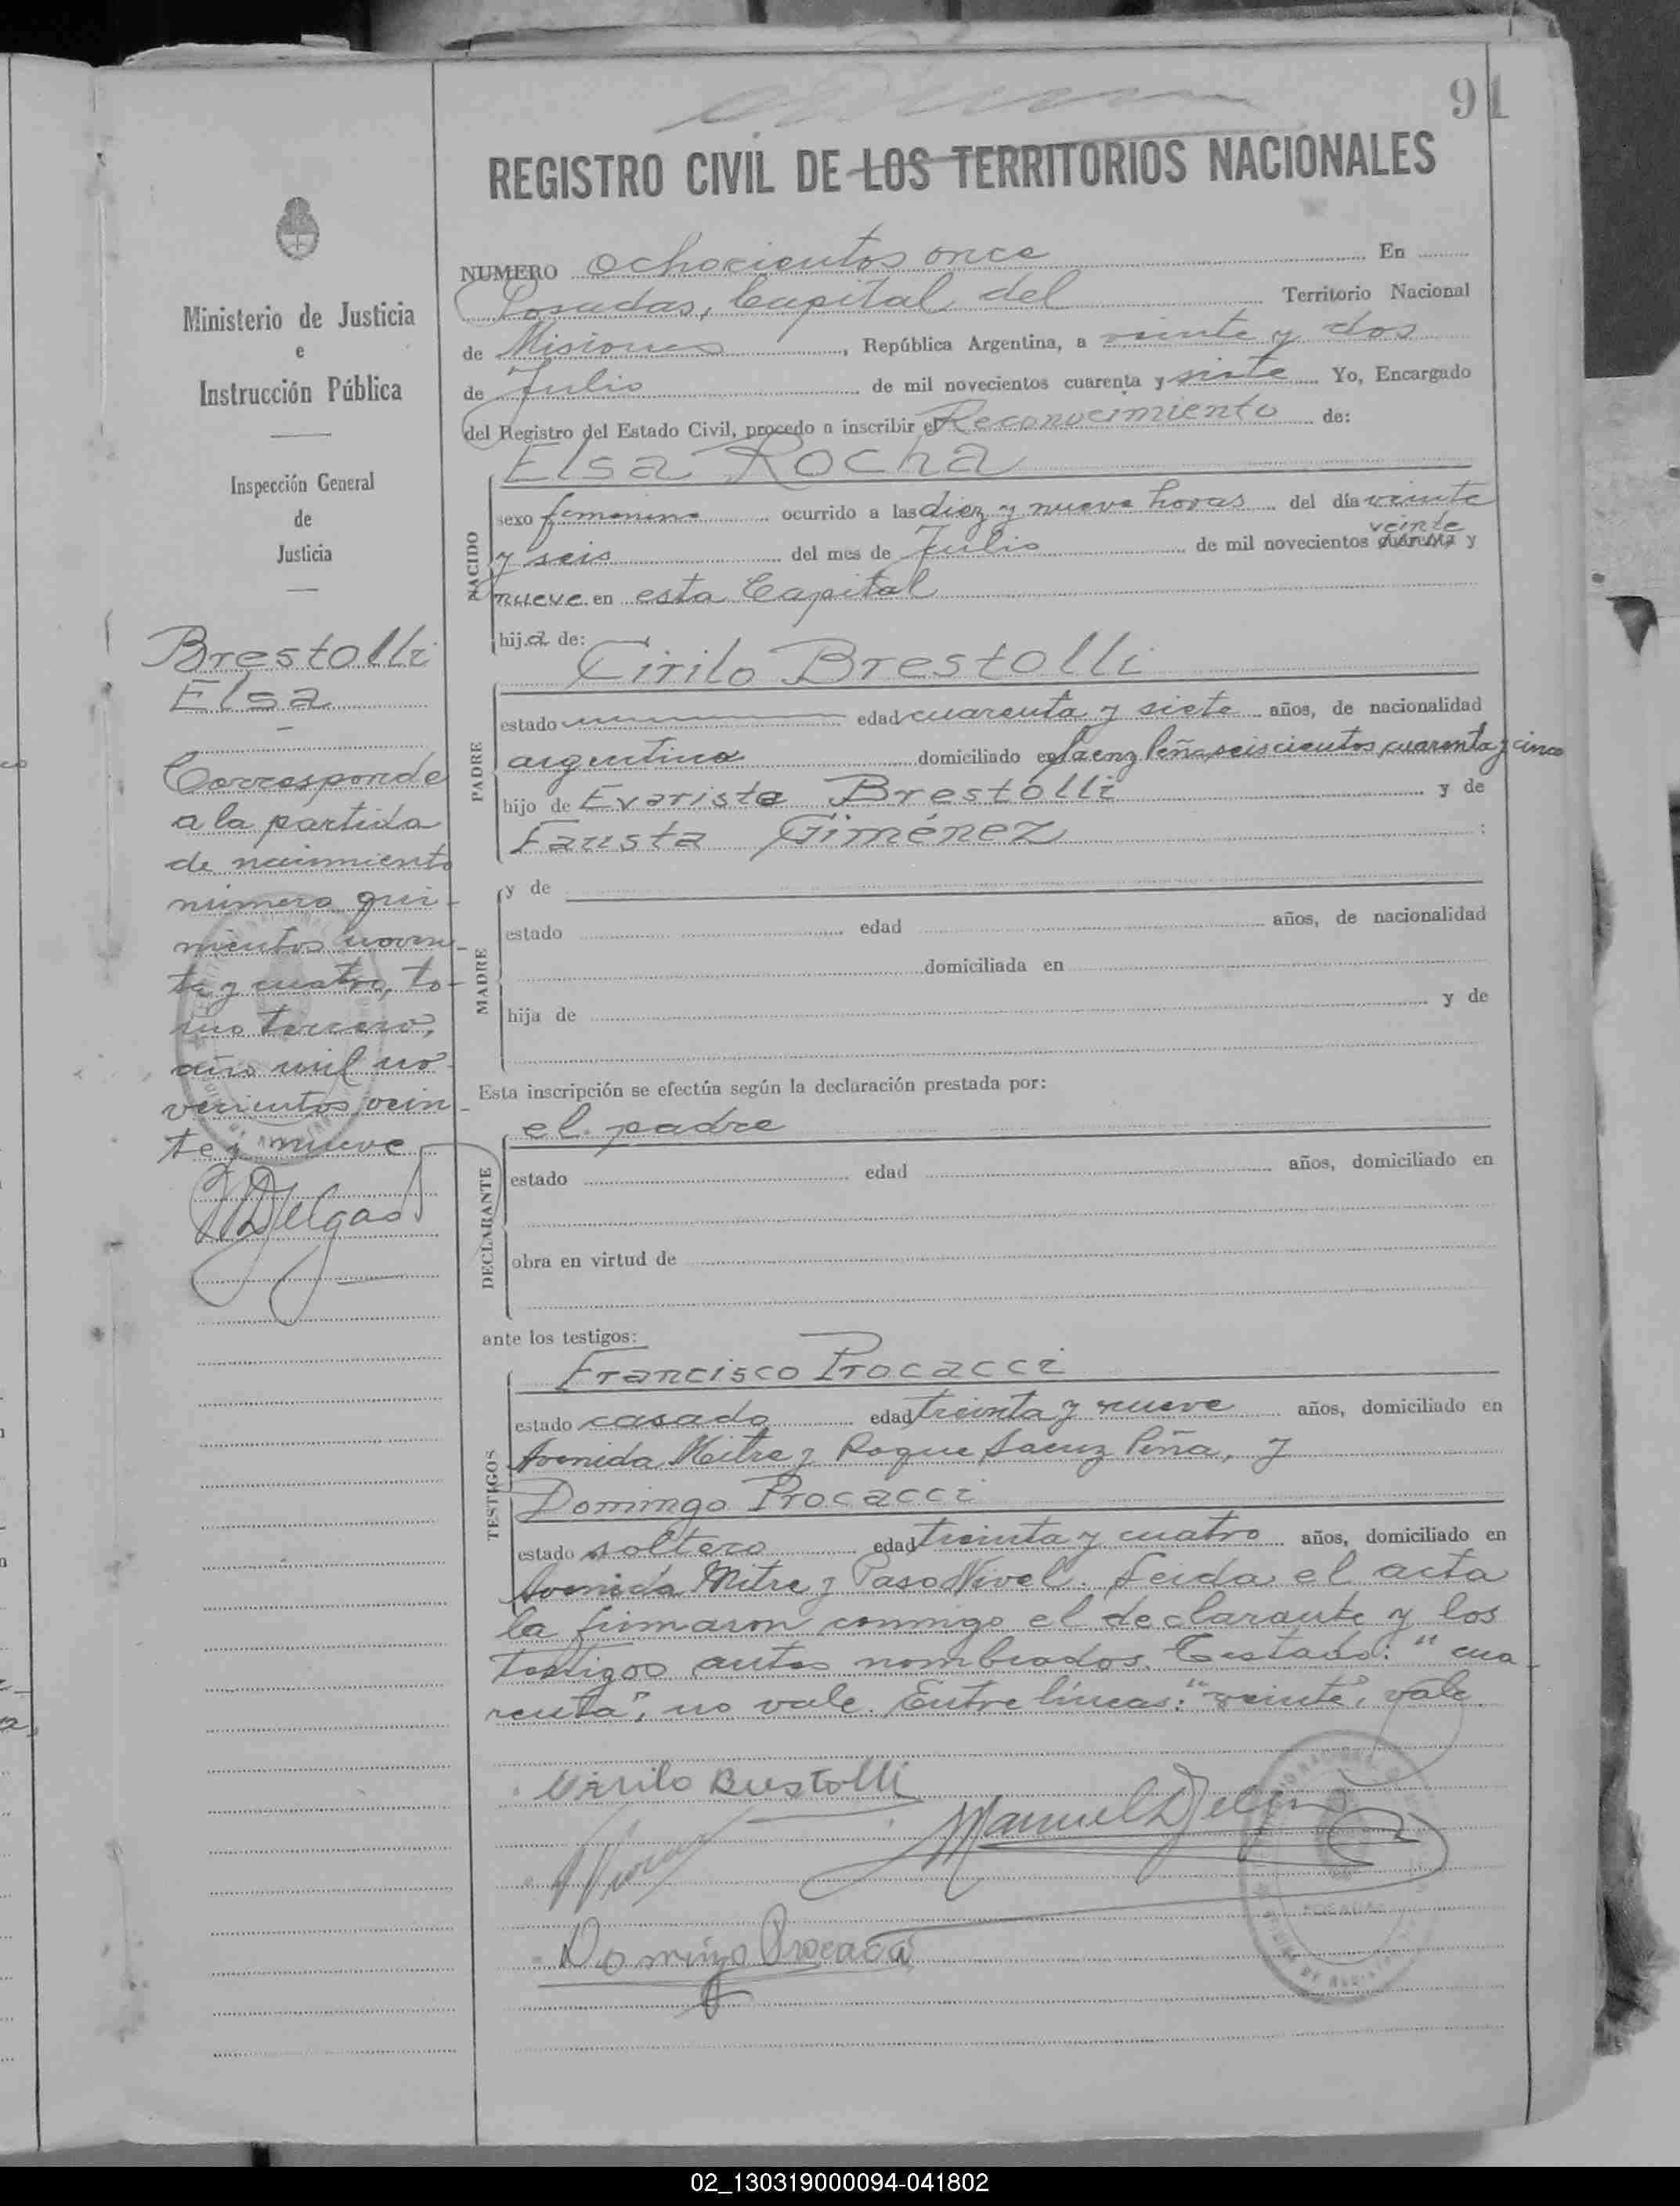 91
REGISTRO CIVIL DE LOS TERRITORIOS NACIONALES
Ministerio de Justicia
e
Instrucción Pública
Inspección General
de
Justicia
Brestolli
Elsa
Corresponde
a la partida
de nacimiento
número qui-
nientos noven-
ta y cuatro, to-
mo tercero,
año mil no-
vecientos vein-
te y nueve
MDelgado
NUMERO ochocientos once En
Posadas, Capital del Territorio Nacional
de Misiones, República Argentina, a veinte y dos
de Julio de mil novecientos cuarenta y siete Yo, Encargado
del Registro del Estado Civil, procedo a inscribir el Reconocimiento de:
Elsa Rocha
NACIDO
sexo femenino ocurrido a las diez y nueve horas del día veinte
veinte
y seis del mes de Julio de mil novecientos cuarenta y
nueve en esta Capital
hija de:
Cirilo Brestolli
PADRE
estado edad cuarenta y siete años, de nacionalidad
argentino domiciliado en Saenz Peña seiscientos cuarenta y cinco
hijo de Evaristo Brestolli y de
Fausta Giménez :
MADRE
y de
estado edad años, de nacionalidad
domiciliada en
hija de y de
Esta inscripción se efectúa según la declaración prestada por:
el padre
DECLARANTE
estado edad años, domiciliado en
obra en virtud de
ante los testigos:
Francisco Procacci
TESTIGOS
estado casado edad treinta y nueve años, domiciliado en
Avenida Mitre y Roque Saenz Peña, y
Domingo Procacci
estado soltero edad treinta y cuatro años, domiciliado en
Avenida Mitre y Paso Nivel. Leida el acta
la firmaron conmigo el declarante y los
testigos antes nombrados. Testado: "cua-
renta", no vale. Entre líneas: "veinte", vale
Cirilo Brestolli
Manuel Delgado
Domingo Procacci
POSADAS
02_130319000094-041802